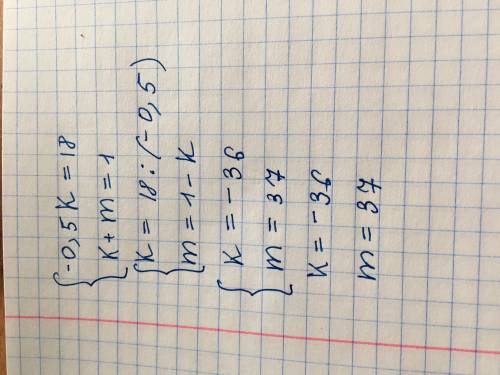 {-0,5K = 18
K + m = 1
{K = 18 : (-0,5)
m = 1 - K
{K = -36
m = 37
K = -36
m = 37